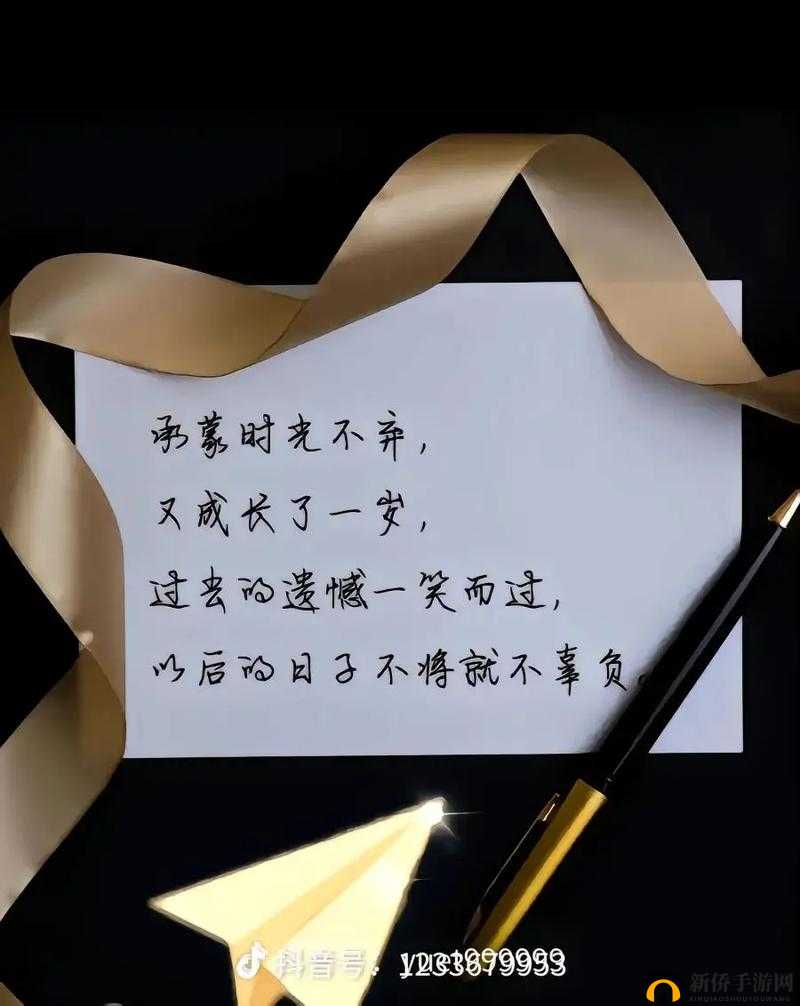 承蒙时光不弃，
又成长了一岁，
过去的遗憾一笑而过，
以后的日子不将就不辜负。
抖音号：
新侨手游网
XINQIAOSHOUYOUWANG